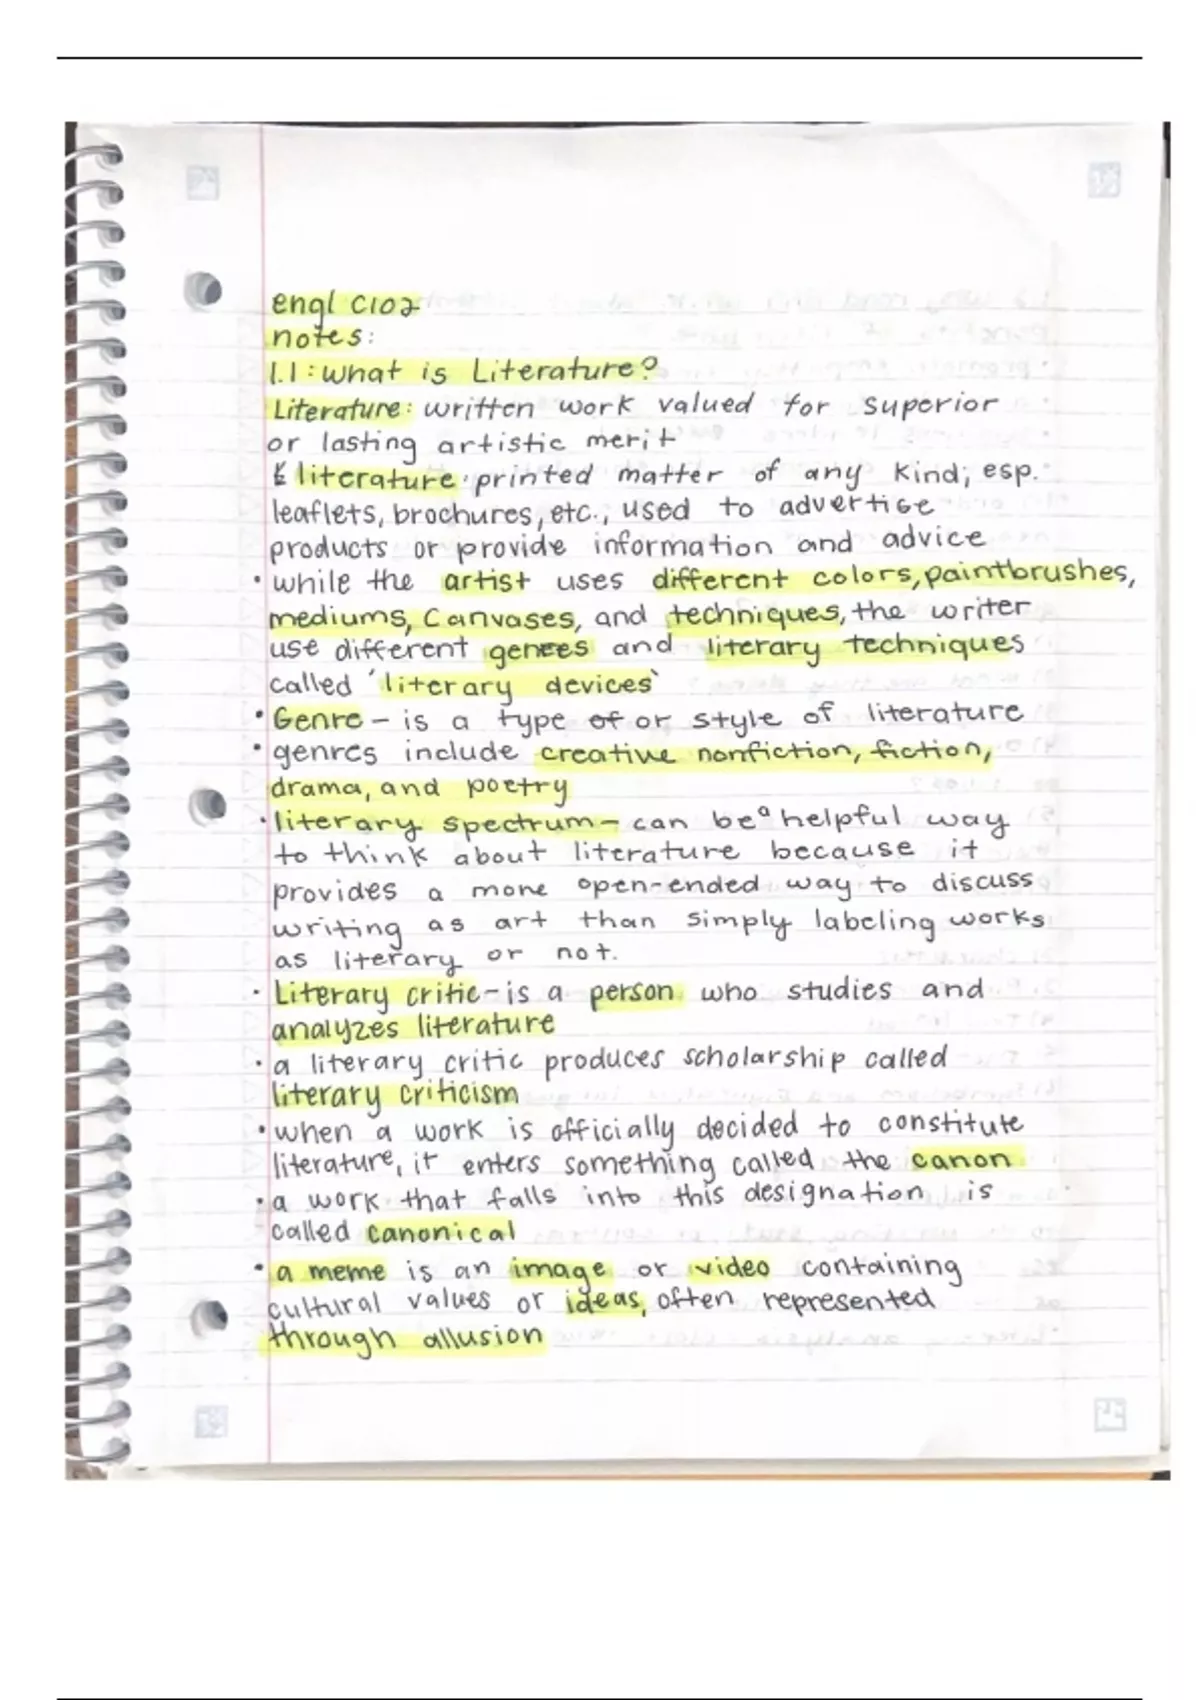 engl C102
notes:
1.1: what is Literature?
Literature: written work valued for superior
or lasting artistic merit
literature: printed matter of any kind; esp.
leaflets, brochures, etc., used to advertise
products or provide information and advice
• while the artist uses different colors, paintbrushes,
mediums, canvases, and techniques, the writer
use different genres and literary techniques
called 'literary devices'
• Genre – is a type of or style of literature
• genres include creative nonfiction, fiction,
drama, and poetry
• literary spectrum – can be a helpful way
to think about literature because it
provides a more open-ended way to discuss
writing as art than simply labeling works
as literary or not.
• Literary critic – is a person who studies and
analyzes literature
• a literary critic produces scholarship called
literary criticism
• when a work is officially decided to constitute
literature, it enters something called the canon
• a work that falls into this designation is
called canonical
• a meme is an image or video containing
cultural values or ideas, often represented
through allusion